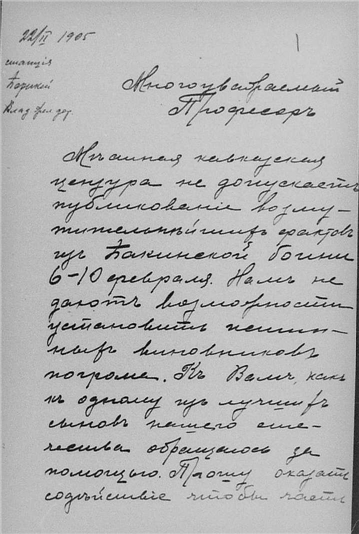 22/II 1905
станція
Владикавк. жел. дор.
Многоуважаемый
Професоръ
Мѣстная кавказская
цензура не допускаетъ
публикованіе возму-
тительнѣйшихъ фактовъ
изъ Бакинской бойни
6-10 февраля. Намъ не
даютъ возможности
установить истин-
ныхъ виновниковъ
погрома. Къ Вамъ, какъ
къ одному изъ лучшихъ
сыновъ нашего оте-
чества обращаюсь за
помощью. Прошу оказать
содѣйствіе чтобы часть